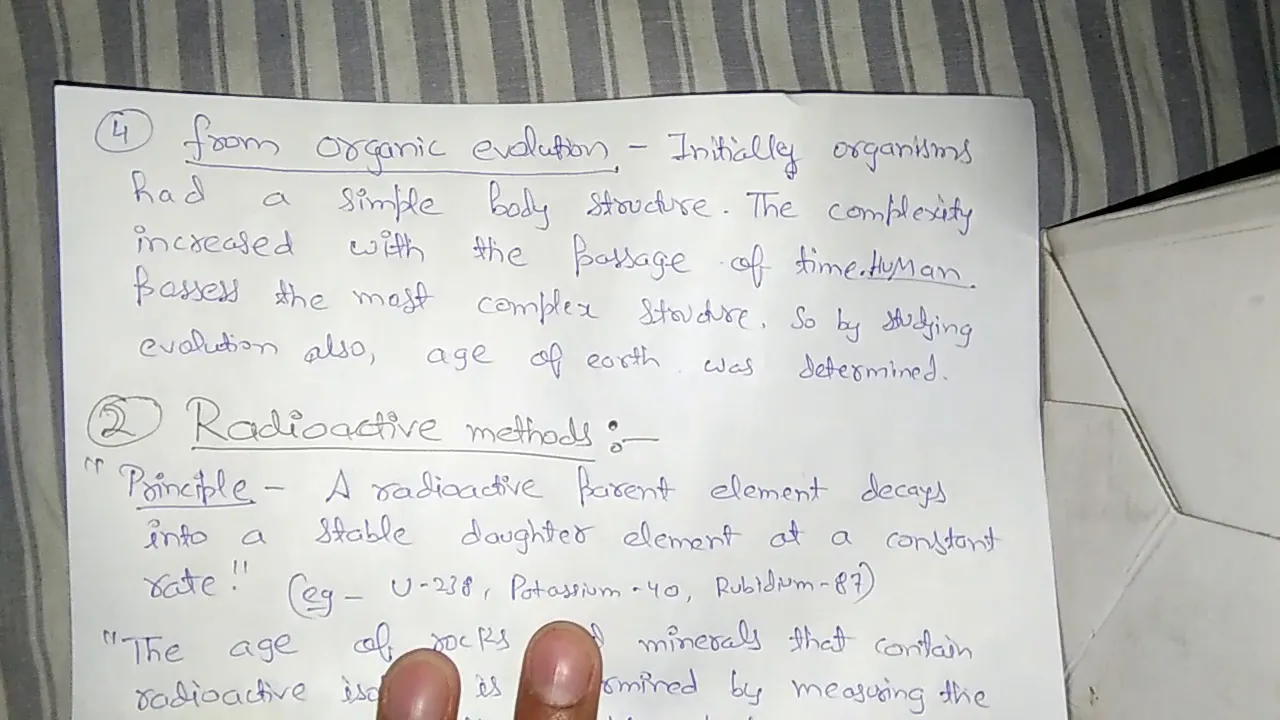 ④ from organic evolution - Initially organisms
had a simple body structure. The complexity
increased with the passage of time. HuMan
possess the most complex structure. So by studying
evolution also, age of earth was determined.
② Radioactive methods :-
"Principle - A radioactive parent element decays
into a stable daughter element at a constant
rate." (eg - U-238, Potassium-40, Rubidium-87)
"The age of rocks minerals that contain
radioactive is by measuring the